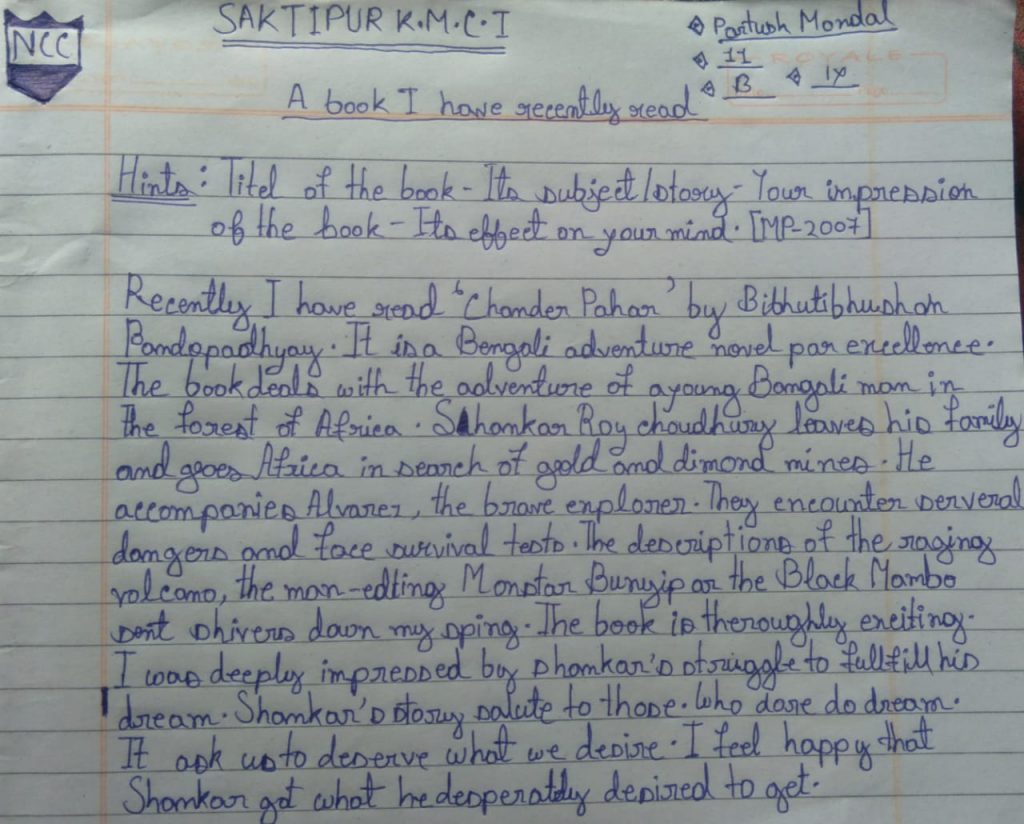 NCC
SAKTIPUR K.M.C.I
Partush Mondal
11
B IX
ROYALE
A book I have recently read
Hints: Titel of the book - Its subject/story - Your impression
of the book - Its effect on your mind. [MP-2007]
Recently I have read 'Chander Pahar' by Bibhutibhushan
Bandopadhyay. It is a Bengali adventure novel par excellence.
The book deals with the adventure of a young Bangali man in
the forest of Africa. Shankar Roy choudhury leaves his family
and goes Africa in search of gold and dimond mines. He
accompanies Alvarez, the brave explorer. They encounter serveral
dangers and face survival tests. The descriptions of the raging
volcano, the man-edting Monstar Bunyip or the Black Mambo
sent shivers down my sping. The book is theroughly exciting.
I was deeply impressed by Shankar's struggle to fullfill his
dream. Shankar's story salute to those. Who dare do dream.
It ask us to deserve what we desire. I feel happy that
Shankar got what he desperatly desired to get.